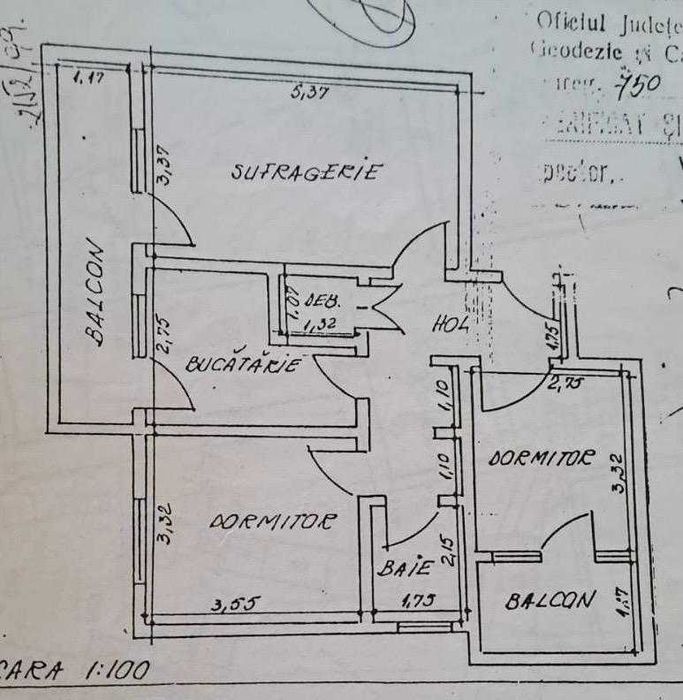 2152/99.
Oficiul Județe
Geodezie și Ca
750
VERIFICAT ȘI
pector,
1,17
5,37
3,37
SUFRAGERIE
BALCON
1,07
DEB.
1,32
HOL
1,75
2,75
BUCĂTĂRIE
2,75
1,10
1,10
DORMITOR
3,32
3,32
DORMITOR
BAIE
2,15
3,55
1,75
BALCON
1,17
CARA 1:100